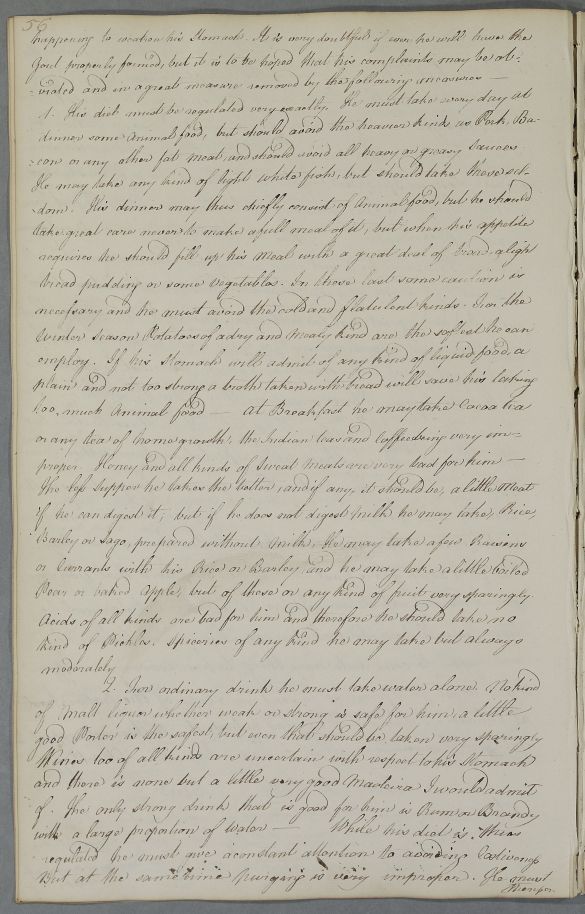 56
happening to weaken his Stomach. It is very doubtful if ever he will have the
Gout properly formed, but it is to be hoped that his complaints may be ob-
-viated and in a great measure removed by the following measures —
1. His diet must be regulated very exactly. He must take every day at
dinner some Animal food, but should avoid the heavier kinds as Pork, Ba-
-con or any other fat meat, and should avoid all heavy or greasy Sauces.
He may take any kind of light white fish, but should take these sel-
-dom. His dinner may thus chiefly consist of Animal food, but he should
take great care never to make a full meal of it, but when his appetite
requires he should fill up his meal with a great deal of bread, a light
bread pudding or some vegetables. In these last some caution is
necessary and he must avoid the cold and flatulent kinds. For the
Winter Season Potatoes of a dry and mealy kind are the safest he can
employ. If his Stomach will admit of any kind of liquid food, a
plain and not too strong a broth taken with bread will save his taking
too much Animal food — At Breakfast he may take Cocoa tea
or any tea of home growth; the Indian teas and Coffee being very im-
proper. Honey and all kinds of Sweat Meats are very bad for him —
The less Supper he takes the better, and if any, it should be, a little Meat
if he can digest it; but if he does not digest milk he may take, Rice,
Barley or Sago, prepared without milk. He may take a few Raisins
or Currants with his Rice or Barley, and he may take a little boiled
Pear or baked Apple, but of these or any kind of fruit very sparingly.
Acids of all kinds are bad for him and therefore he should take no
kind of Pickles. Spiceries of any kind he may take but always
moderately
2. For ordinary drink he must take water alone. No kind
of Malt liquor whether weak or strong is safe for him, a little
good Porter is the safest, but even that should be taken very sparingly
Wines too of all kinds are uncertain with respect to his Stomach
and there is none but a little very good Madeira I would admit
of. The only strong drink that is good for him is Rum or Brandy
with a large proportion of Water — While his diet is thus
regulated he must give a constant attention to avoiding Costiveness
But at the same time Purging is very improper. He must